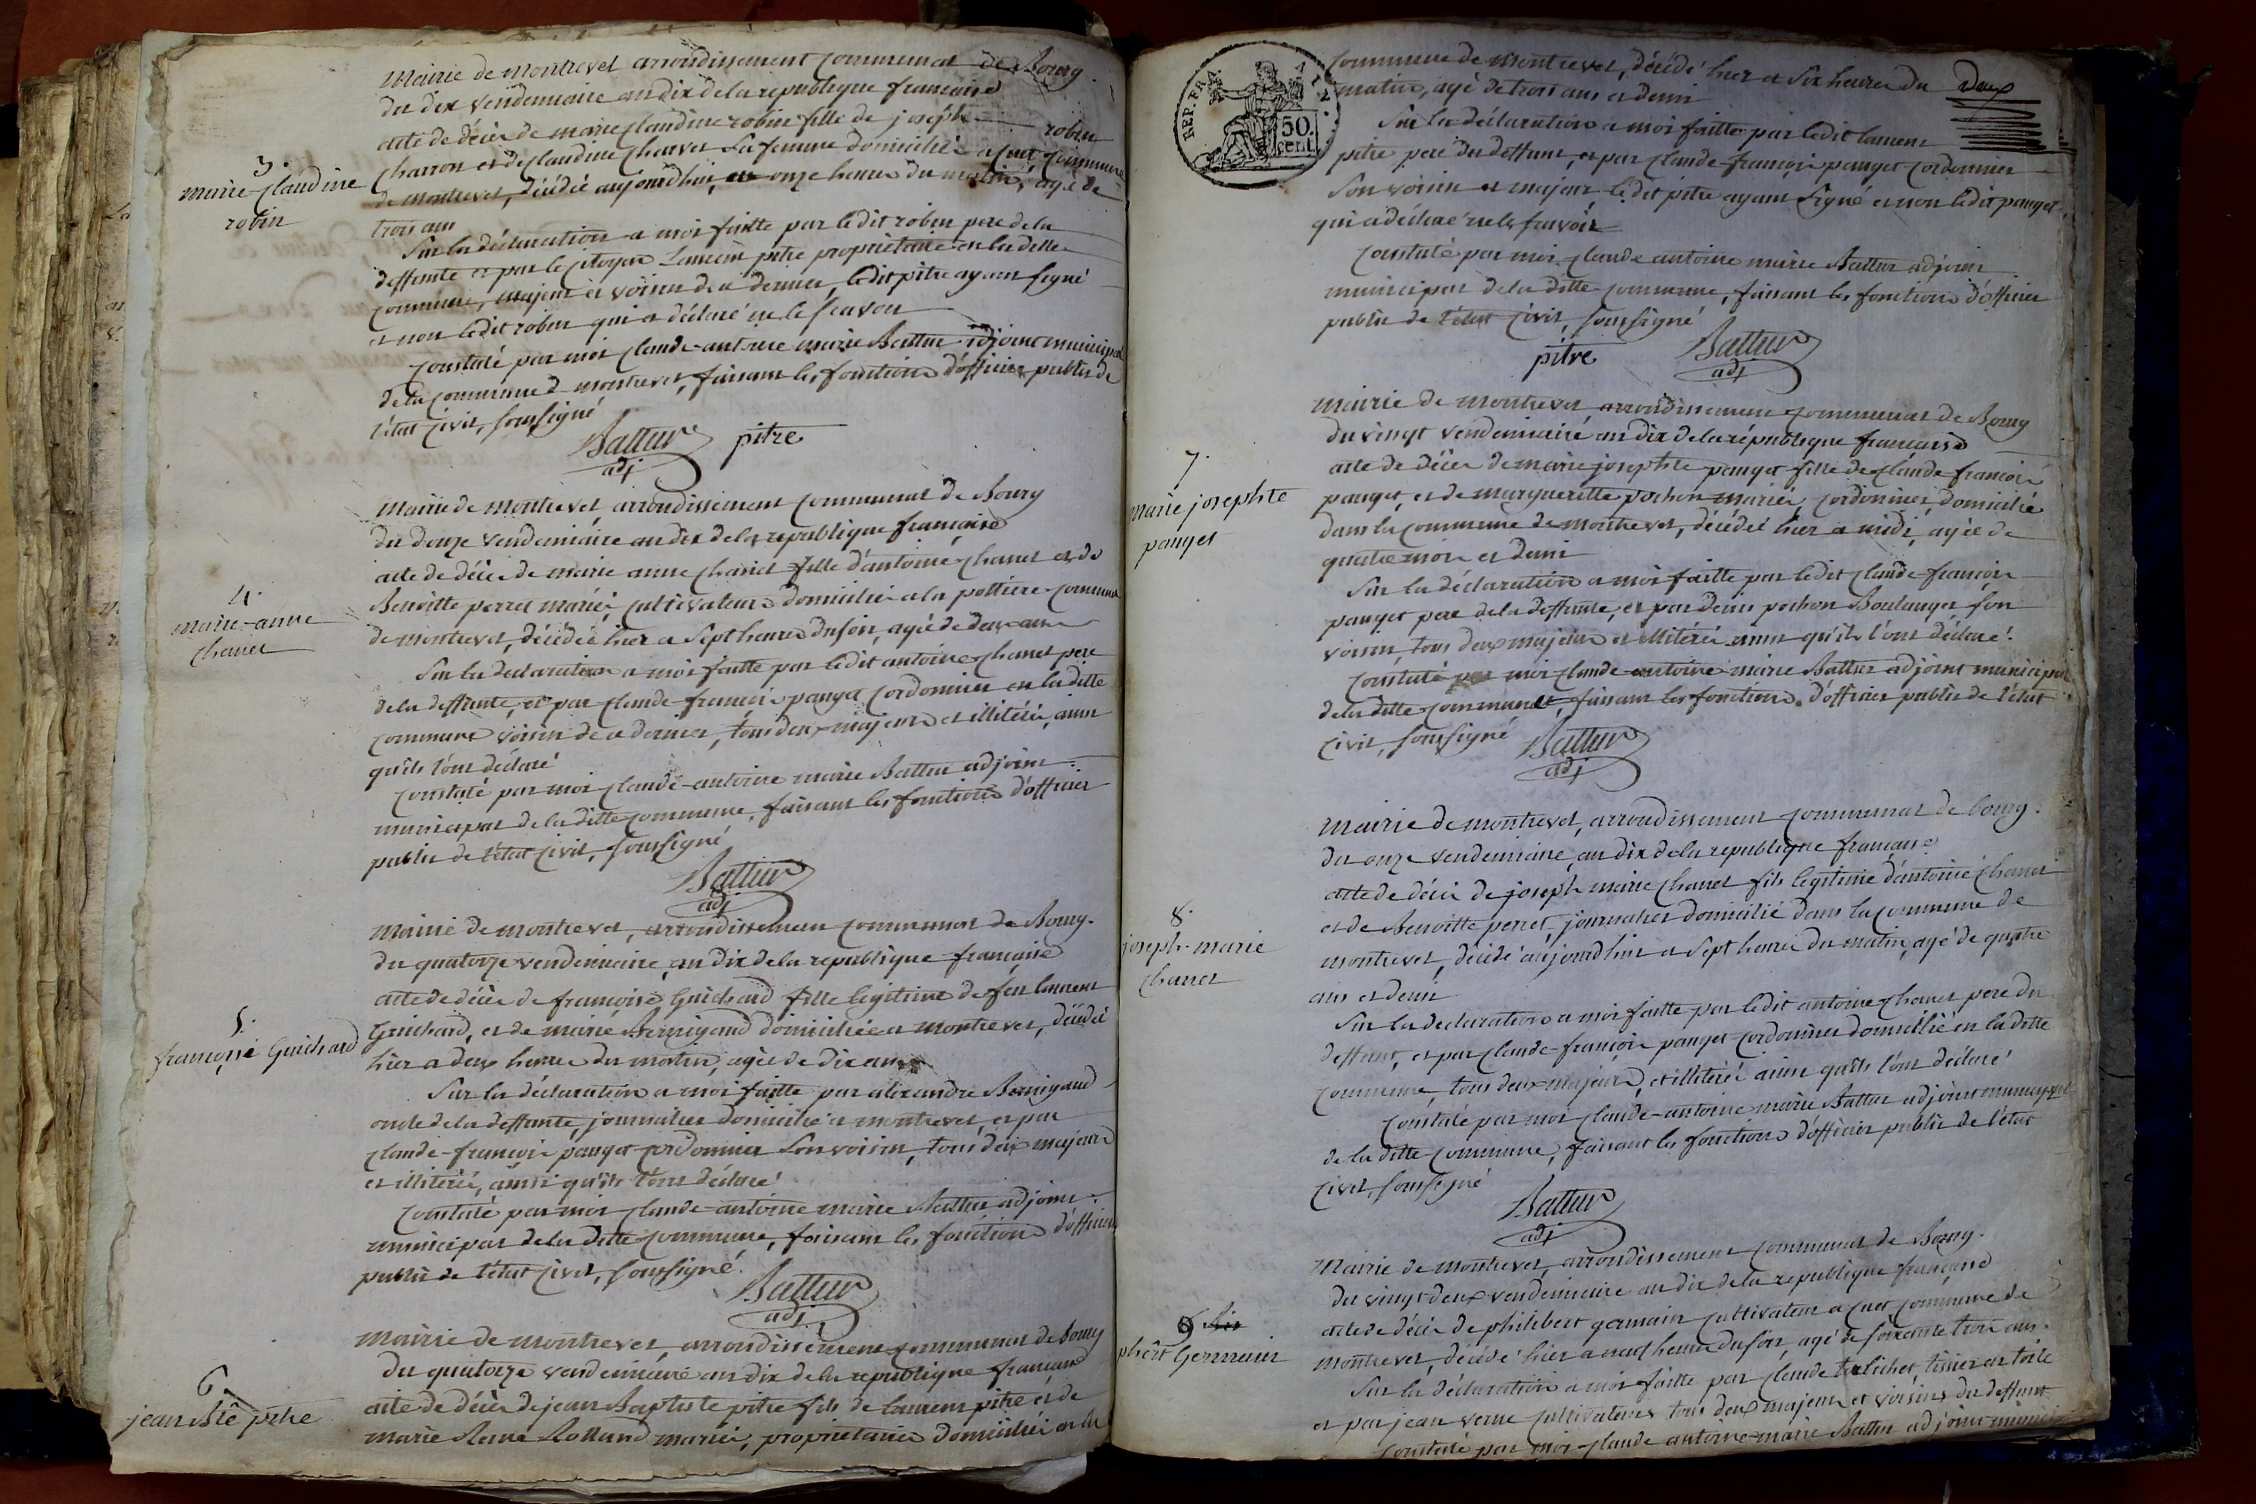 mairie de montrevel arrondissement communal de Bourg.
du dix vendemiaire an dix de la republique francaise
acte de décès de marie Claudine robin fille de joseph robin
charron et de Claudine Charvet sa femme domicilié a Cuet Commune
de montrevel, décédée aujourdhui, a onze heures du matin, agé de
trois ans
3.
marie Claudine
robin
Sur la déclaration a moi faitte par ledit robin pere de la
deffunte et par le Citoyen Laurent pitre proprietaire en la ditte
commune, majeur et voisin de a dernier, ledit pitre ayant signé
et non ledit robin qui a déclaré ne le scavoir
Constaté par moi Claude-antoine marie Battur adjoint municipal
de la commune de montrevel, faisant les fonctions d'officier public de
l'état Civil, soussigné
Battur pitre
adj
mairie de montrevel, arrondissement communal de Bourg
du douze vendemiaire an dix de la republique francaise
acte de décès de marie anne Chanel fille d'antoine Chanel et de
Benoitte perret mariés, cultivateurs domiciliés a la pottiere commune
de montrevel, décédée hier a sept heures du soir, agée de deux ans
4.
marie-anne
Chanel
Sur la declaration a moi faitte par ledit antoine Chanel pere
de la deffunte, et par Claude-francois panget cordonnier en la ditte
commune voisin de a dernier, tous deux majeurs et illitérés, ainsi
qu'ils l'ont déclaré
Constaté par moi Claude-antoine marie Battur adjoint
municipal de la ditte commune, faisant les fonctions d'officier
public de l'état Civil, soussigné
Battur
adj
mairie de montrevel, arrondissement communal de Bourg.
du quatorze vendemiaire, an dix de la republique francaise
acte de décès de francoise Guichard fille legitime de feu laurent
Guichard, et de marie Bernigaud domiciliée a montrevel, décédée
hier a deux heures du matin, agée de dix ans
5.
francoise Guichard
Sur la déclaration a moi faitte par alexandre Bernigaud
oncle de la deffunte, journalier domicilié a montrevel, et par
Claude-francois panget cordonnier son voisin, tous deux majeurs
et illitérés, ainsi qu'ils l'ont déclaré
Constaté par moi Claude-antoine marie Battur adjoint
municipal de la ditte commune, faisant les fonctions d'officier
public de l'état Civil, soussigné.
Battur
adj
mairie de montrevel, arrondissement communal de bourg
du quatorze vendemiaire an dix de la republique francaise
acte de décès de jean Baptiste pitre fils de laurent pitre et de
marie Reine Rolland mariés, proprietaires domiciliés en la
6.
jean Bte pitre
REP. FRA.
50.
cent.
deux
commune de montrevel, décédé hier a six heures du
matin, agé de trois ans et demi
Sur la déclaration a moi faitte par ledit laurent
pitre pere du deffunt, et par Claude-francois panget Cordonnier
son voisin et majeur ledit pitre ayant signé et non ledit panget,
qui a déclaré ne le scavoir
Constaté par moi Claude antoine marie Battur adjoint
municipal de la ditte commune, faisant les fonctions d'officier
public de l'état Civil, soussigné
pitre Battur
adj
mairie de montrevel arrondissement communal de Bourg
du vingt vendemiaire an dix de la république francaise
acte de décès de marie josephte panget fille de Claude francois
panget, et de margueritte pochon mariés, cordonnier, domicilié
dans la commune de montrevel, décédée hier a midi, agée de
quatre mois et demi
7.
marie josephte
panget
Sur la déclaration a moi faitte par ledit Claude francois
panget pere de la deffunte, et par denis pochon Boulanger son
voisin, tous deux majeurs et illitérés ainsi qu'ils l'ont déclaré.
Constaté par moi Claude antoine marie Battur adjoint municipal
de la ditte commune, faisant les fonctions d'officier public de l'état
Civil, soussigné
Battur
adj
mairie de montrevel, arrondissement communal de bourg.
du onze vendemiaire, an dix de la republique francaise
acte de décès de joseph marie Chanel fils legitime d'antoine Chanel
et de Benoitte perret, journalier domicilié dans la commune de
montrevel, décédé aujourdhui a sept heures du matin, agé de quatre
ans et demi
8.
joseph-marie
Chanel
Sur la declaration a moi faitte par ledit antoine Chanel pere du
deffunt, et par Claude-francois panget cordonnier domicilié en la ditte
commune, tous deux majeurs, et illitérés ainsi qu'ils l'ont déclaré
Constaté par moi Claude-antoine marie Battur adjoint municipal
de la ditte commune, faisant les fonctions d'officier public de l'état
Civil, soussigné
Battur
adj
mairie de montrevel, arrondissement communal de Bourg.
du vingt deux vendemiaire an dix de la republique francaise
acte de décès de philibert germain cultivateur a Cuet commune de
montrevel, décédé hier a neuf heures du soir, agé de soixante trois ans.
9
phbert Germain
Sur la déclaration a moi faitte par Claude tissier en toile
et par jean verne cultivateurs tous deux majeurs et voisins du deffunt
Constaté par moi Claude antoine marie Battur adjoint